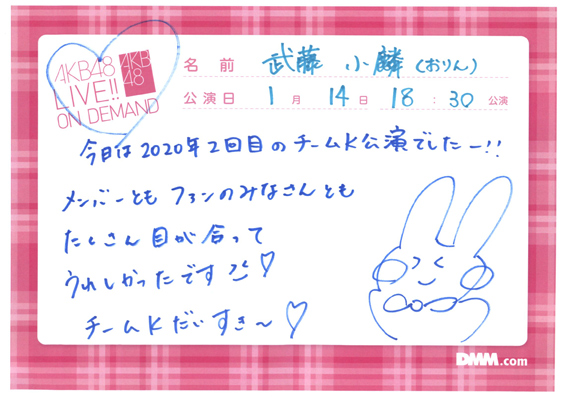 AKB48
LIVE!!
ON DEMAND
AKB
48
名前 武藤 小麟(おりん)
公演日 1月 14日 18:30公演
今日は2020年2回目のチームK公演でしたー!!
メンバーとも ファンのみなさんとも
たくさん目が合って
うれしかったです
チームKだいすき〜♡
DMM.com